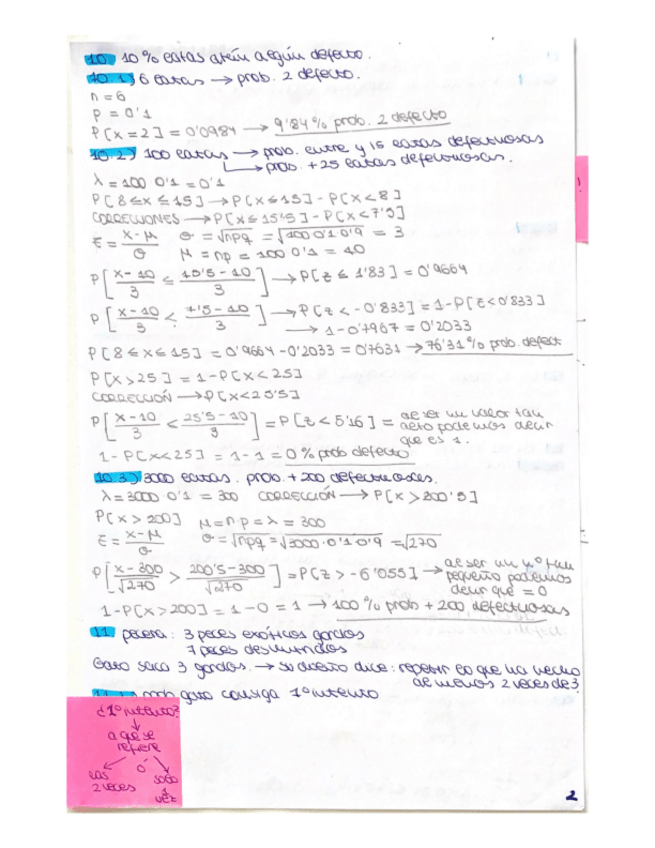 10. 10% latas atún algún defecto.
10.1) 6 latas → prob. 2 defecto.
n = 6
p = 0'1
P[x = 2] = 0'0984 → 9'84% prob. 2 defecto
10.2) 100 latas → prob. entre y 15 latas defectuosas
→ prob. +25 latas defectuosas.
λ = 100 · 0'1 = 0'1
P[8 ≤ x ≤ 15] → P[x ≤ 15] - P[x < 8]
CORRECCIONES → P[x ≤ 15'5] - P[x < 7'5]
z = x-μ / σ σ = √npq = √100·0'1·0'9 = 3
μ = np = 100 · 0'1 = 10
P[x-10 / 3 ≤ 15'5-10 / 3] → P[z ≤ 1'83] = 0'9664
P[x-10 / 3 < 7'5-10 / 3] → P[z < -0'833] = 1-P[z < 0'833]
→ 1-0'7967 = 0'2033
P[8 ≤ x ≤ 15] = 0'9664 - 0'2033 = 0'7631 → 76'31% prob. defect
P[x > 25] = 1 - P[x < 25]
CORRECCIÓN → P[x < 25'5]
P[x-10 / 3 < 25'5-10 / 3] = P[z < 5'16] = al ser un valor tan
alto podemos decir
que es 1.
1 - P[x < 25] = 1 - 1 = 0% prob defecto
10.3) 3000 latas. prob. +200 defectuosas.
λ = 3000 · 0'1 = 300 CORRECCIÓN → P[x > 200'5]
P[x > 200] μ = n p = λ = 300
z = x-μ / σ σ = √npq = √3000·0'1·0'9 = √270
P[x-300 / √270 > 200'5-300 / √270] = P[z > -6'055] → al ser un nº tan
pequeño podemos
decir que = 0
1 - P[x > 200] = 1 - 0 = 1 → 100% prob +200 defectuosas
11 pecera: 3 peces exóticos gordos
7 peces desnutridos
Gato saca 3 gordos. → su dueño dice: repetir lo que ha hecho
al menos 2 veces de 3
11.1) prob gato consiga 1º intento
¿1º intento?
a qué se
refiere
las
2 veces
ó
solo
1
vez
2